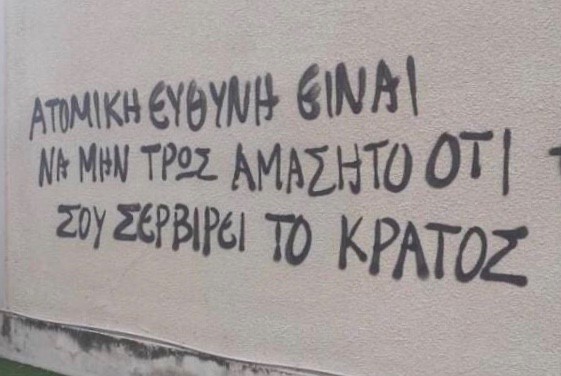 ΑΤΟΜΙΚΗ ΕΥΘΥΝΗ ΕΙΝΑΙ
ΝΑ ΜΗΝ ΤΡΩΣ ΑΜΑΣΗΤΟ ΟΤΙ
ΣΟΥ ΣΕΡΒΙΡΕΙ ΤΟ ΚΡΑΤΟΣ